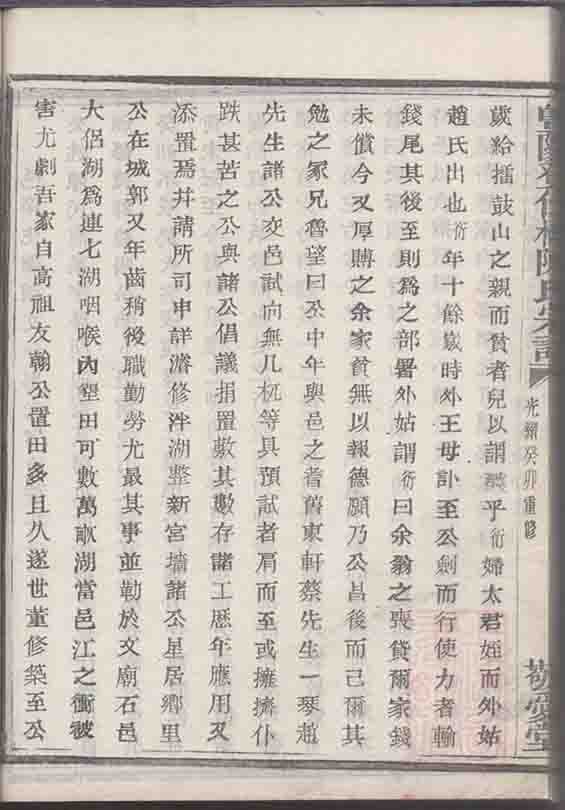 陳氏宗譜
光緒癸卯重修
敬愛堂
歲給擂鼓山之親而貧者兒以謂 乎衍婦太君姪而外姑
趙氏出也衍年十餘歲時外王母訃至公劍而行使力者輸
錢尾其後至則為之部署外姑謂衍曰余翁之喪貸爾家錢
未償今又厚賻之余家貧無以報德願乃公昌後而已爾其
勉之冢兄魯望曰公中年與邑之耆舊東軒蔡先生一琴趙
先生諸公交邑試向無几杌等具預試者肩而至或擁擠仆
跌甚苦之公與諸公倡議捐置敷其數存諸工歷年應用又
添置焉并請所司申詳濬修泮湖整新宮墻諸公星居鄉里
公在城郭又年齒稍後職勤勞尤最其事並勒於文廟石邑
大侶湖為連七湖咽喉內堊田可數萬畝湖當邑江之衝被
害尤劇吾家自高祖友翰公置田多且久遂世董修築至公